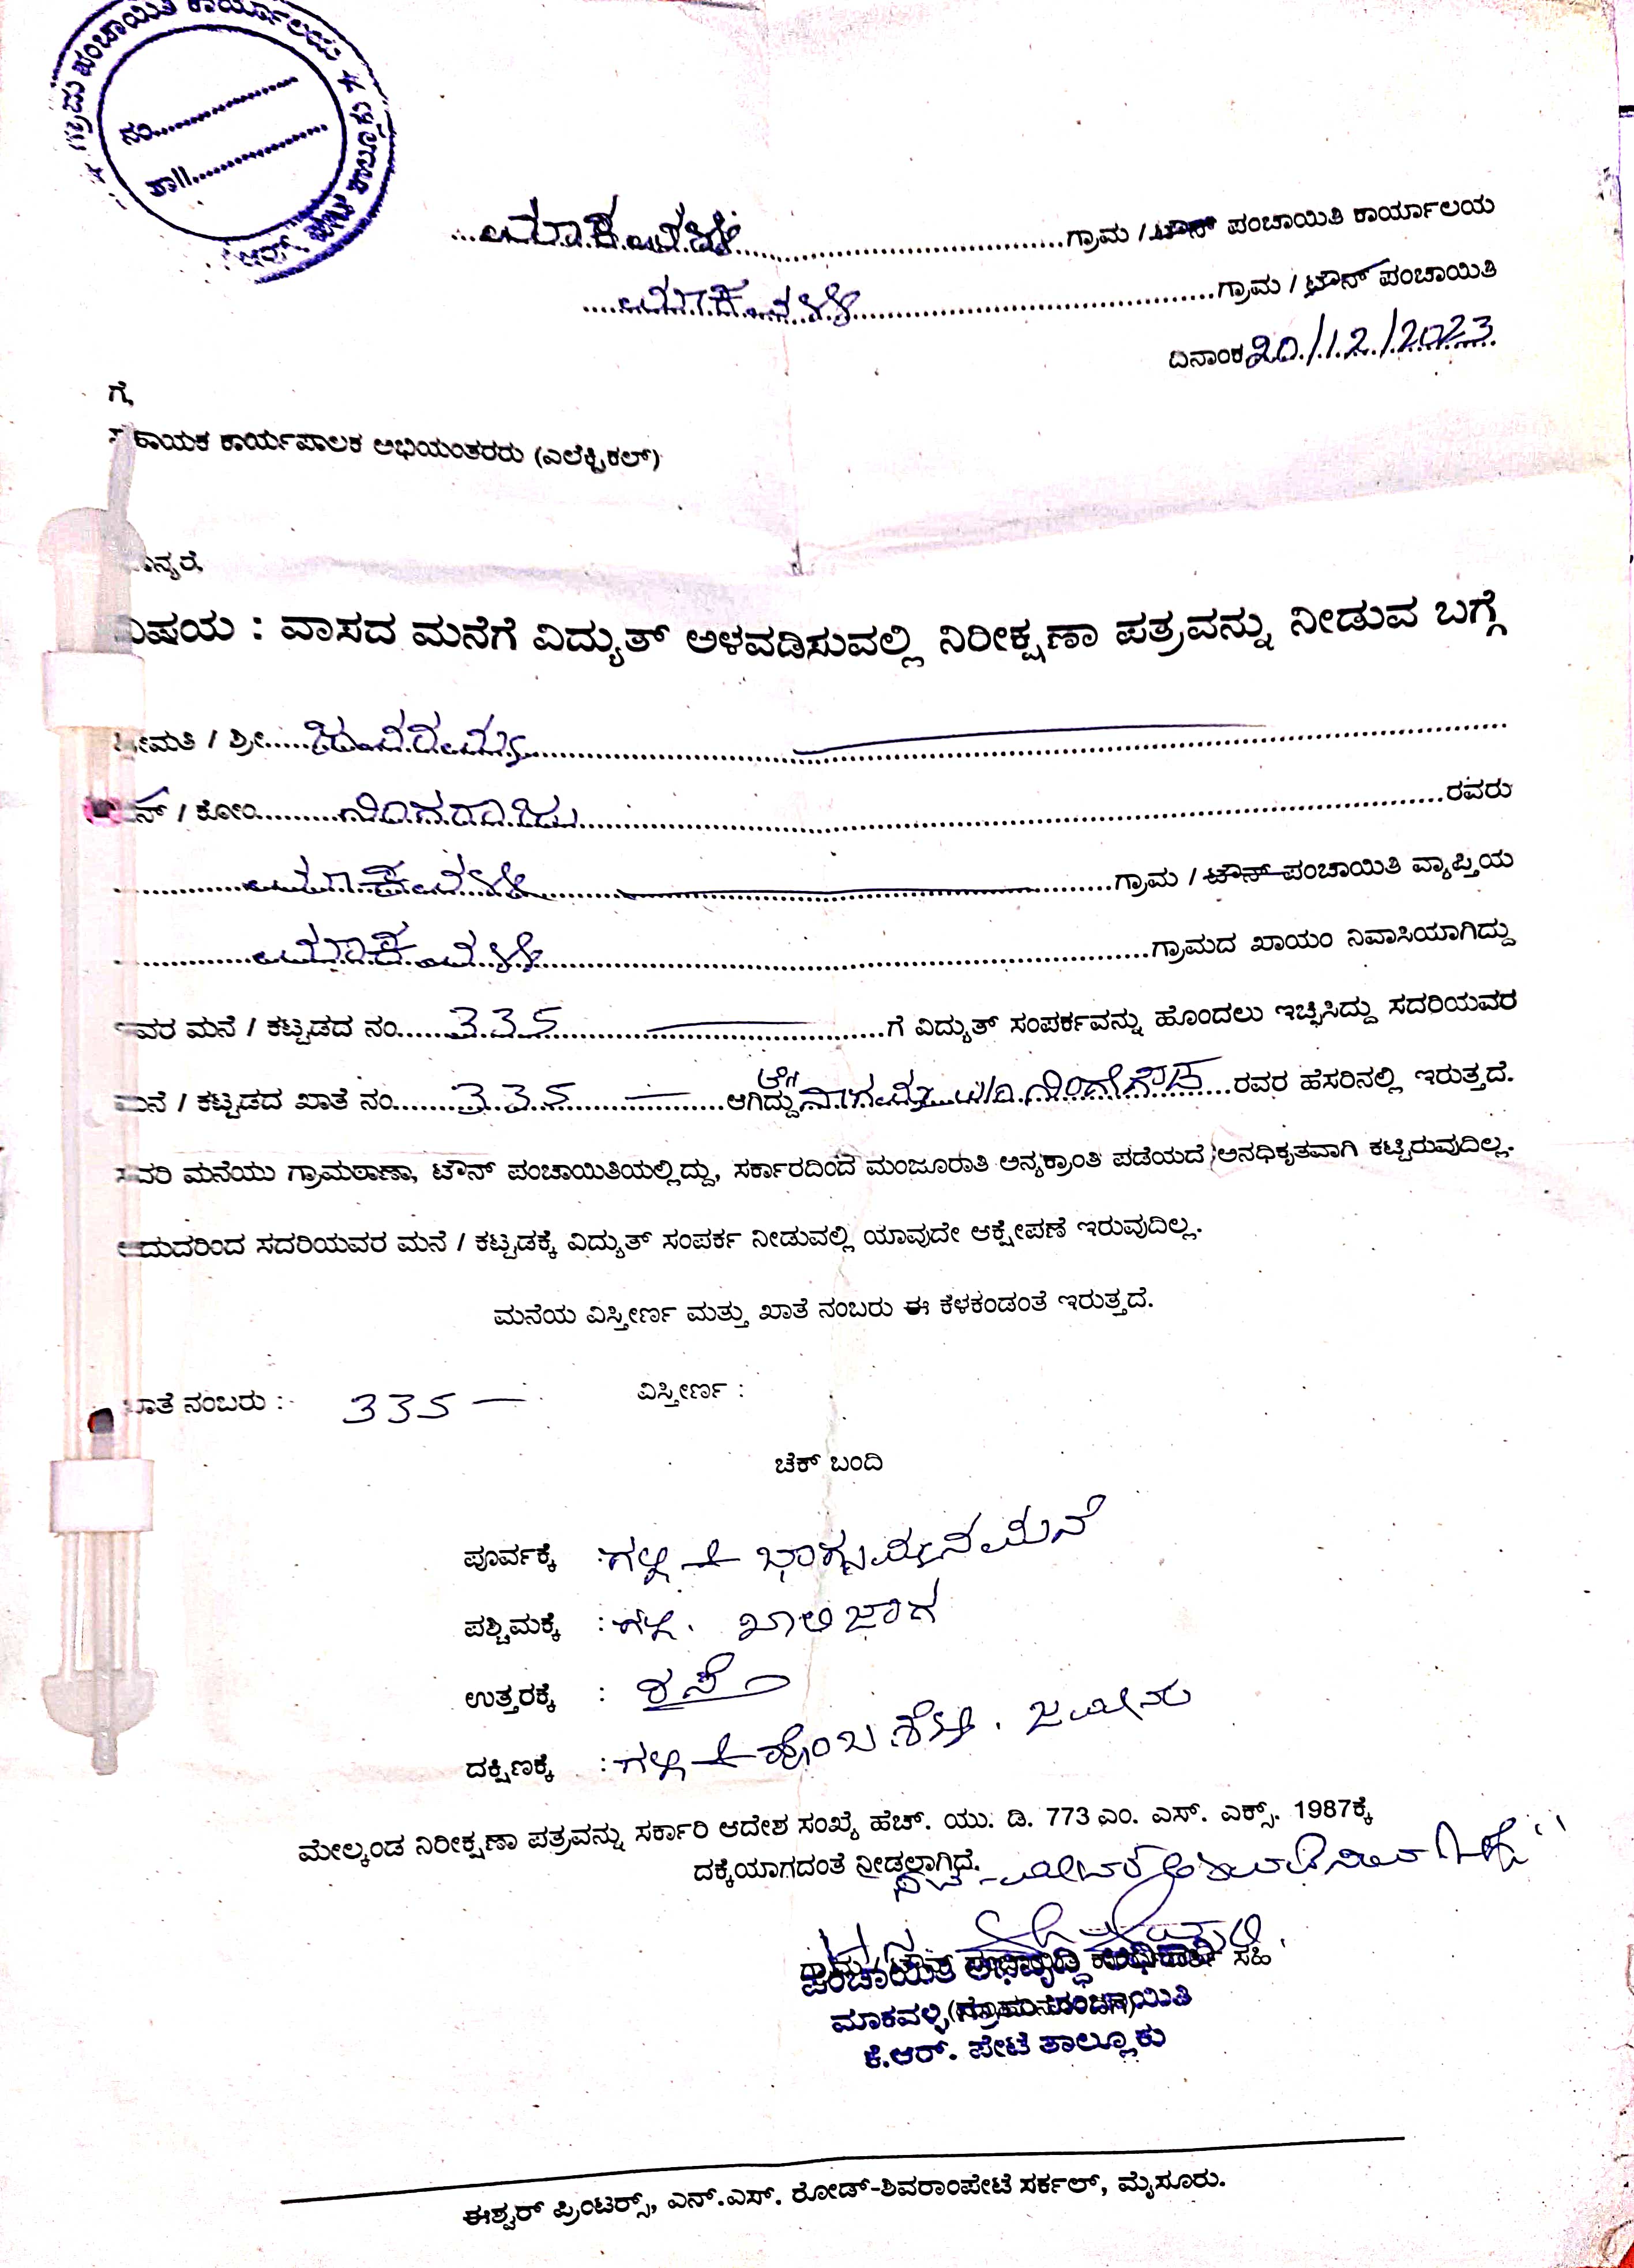 ಗ್ರಾಮ ಪಂಚಾಯಿತಿ ಕಾರ್ಯಾಲಯ
ನಂ..............
ತಾ||..............
ಮಾಕವಳ್ಳಿ ಗ್ರಾಮ / ಟೌನ್ ಪಂಚಾಯಿತಿ ಕಾರ್ಯಾಲಯ
ಮಾಕವಳ್ಳಿ ಗ್ರಾಮ / ಟೌನ್ ಪಂಚಾಯಿತಿ
ದಿನಾಂಕ 20/12/2023
ಗೆ,
ಸಹಾಯಕ ಕಾರ್ಯಪಾಲಕ ಅಭಿಯಂತರರು (ಎಲೆಕ್ಟ್ರಿಕಲ್)
ಮಾನ್ಯರೆ,
ವಿಷಯ : ವಾಸದ ಮನೆಗೆ ವಿದ್ಯುತ್ ಅಳವಡಿಸುವಲ್ಲಿ ನಿರೀಕ್ಷಣಾ ಪತ್ರವನ್ನು ನೀಡುವ ಬಗ್ಗೆ
ಶ್ರೀಮತಿ / ಶ್ರೀ
ಬಿನ್ / ಕೋಂ ಲಿಂಗರಾಜು ರವರು
ಮಾಕವಳ್ಳಿ ಗ್ರಾಮ / ಟೌನ್ ಪಂಚಾಯಿತಿ ವ್ಯಾಪ್ತಿಯ
ಮಾಕವಳ್ಳಿ ಗ್ರಾಮದ ಖಾಯಂ ನಿವಾಸಿಯಾಗಿದ್ದು
ಇವರ ಮನೆ / ಕಟ್ಟಡದ ನಂ. 335 ಗೆ ವಿದ್ಯುತ್ ಸಂಪರ್ಕವನ್ನು ಹೊಂದಲು ಇಚ್ಛಿಸಿದ್ದು ಸದರಿಯವರ
ಮನೆ / ಕಟ್ಟಡದ ಖಾತೆ ನಂ. 335 ಆಗಿದ್ದು ಲಿಂಗೇಗೌಡ ರವರ ಹೆಸರಿನಲ್ಲಿ ಇರುತ್ತದೆ.
ಸದರಿ ಮನೆಯು ಗ್ರಾಮಠಾಣಾ, ಟೌನ್ ಪಂಚಾಯಿತಿಯಲ್ಲಿದ್ದು, ಸರ್ಕಾರದಿಂದ ಮಂಜೂರಾತಿ ಅನ್ಯಕ್ರಾಂತಿ ಪಡೆಯದೆ ಅನಧಿಕೃತವಾಗಿ ಕಟ್ಟಿರುವುದಿಲ್ಲ.
ಆದುದರಿಂದ ಸದರಿಯವರ ಮನೆ / ಕಟ್ಟಡಕ್ಕೆ ವಿದ್ಯುತ್ ಸಂಪರ್ಕ ನೀಡುವಲ್ಲಿ ಯಾವುದೇ ಆಕ್ಷೇಪಣೆ ಇರುವುದಿಲ್ಲ.
ಮನೆಯ ವಿಸ್ತೀರ್ಣ ಮತ್ತು ಖಾತೆ ನಂಬರು ಈ ಕೆಳಕಂಡಂತೆ ಇರುತ್ತದೆ.
ಖಾತೆ ನಂಬರು : 335 — ವಿಸ್ತೀರ್ಣ :
ಚೆಕ್ ಬಂದಿ
ಪೂರ್ವಕ್ಕೆ : ಗಲ್ಲಿ + ಭಾಗ್ಯಮ್ಮನ ಮನೆ
ಪಶ್ಚಿಮಕ್ಕೆ : ಗಲ್ಲಿ. ಖಾಲಿ ಜಾಗ
ಉತ್ತರಕ್ಕೆ : ರಸ್ತೆ
ದಕ್ಷಿಣಕ್ಕೆ : ಗಲ್ಲಿ + ಜಮೀನು
ಮೇಲ್ಕಂಡ ನಿರೀಕ್ಷಣಾ ಪತ್ರವನ್ನು ಸರ್ಕಾರಿ ಆದೇಶ ಸಂಖ್ಯೆ ಹೆಚ್. ಯು. ಡಿ. 773 ಎಂ. ಎಸ್. ಎಕ್ಸ್. 1987ಕ್ಕೆ
ದಕ್ಕೆಯಾಗದಂತೆ ನೀಡಲಾಗಿದೆ.
ಪಂಚಾಯಿತಿ ಅಭಿವೃದ್ಧಿ ಅಧಿಕಾರಿ ಸಹಿ
ಮಾಕವಳ್ಳಿ ಗ್ರಾಮ ಪಂಚಾಯಿತಿ
ಕೆ.ಆರ್. ಪೇಟೆ ತಾಲ್ಲೂಕು
ಈಶ್ವರ್ ಪ್ರಿಂಟರ್ಸ್, ಎನ್.ಎಸ್. ರೋಡ್-ಶಿವರಾಂಪೇಟೆ ಸರ್ಕಲ್, ಮೈಸೂರು.